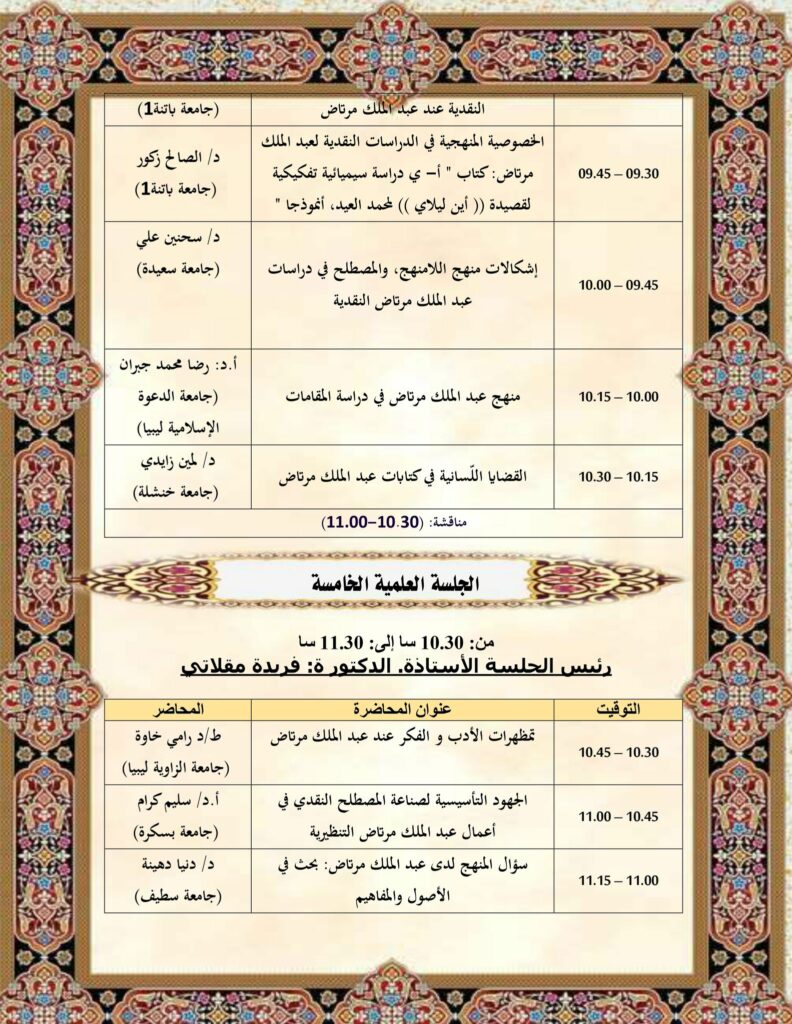 النقدية عند عبد الملك مرتاض
(جامعة باتنة1)
09.30 – 09.45
الخصوصية المنهجية في الدراسات النقدية لعبد الملك
مرتاض: كتاب " أ– ي دراسة سيميائية تفكيكية
لقصيدة (( أين ليلاي )) لمحمد العيد، أنموذجا "
د/ الصالح زكور
(جامعة باتنة1)
09.45 – 10.00
إشكالات منهج اللامنهج، والمصطلح في دراسات
عبد الملك مرتاض النقدية
د/ سحنين علي
(جامعة سعيدة)
10.00 – 10.15
منهج عبد الملك مرتاض في دراسة المقامات
أ.د: رضا محمد جبران
(جامعة الدعوة
الإسلامية ليبيا)
10.15 – 10.30
القضايا اللّسانية في كتابات عبد الملك مرتاض
د/ لمين زايدي
(جامعة خنشلة)
مناقشة: (10.30–11.00)
الجلسة العلمية الخامسة
من: 10.30 سا إلى: 11.30 سا
رئيس الجلسة الأستاذة. الدكتور ة: فريدة مقلاتي
التوقيت
عنوان المحاضرة
المحاضر
10.30 – 10.45
تمظهرات الأدب و الفكر عند عبد الملك مرتاض
ط/د رامي خاوة
(جامعة الزاوية ليبيا)
10.45 – 11.00
الجهود التأسيسية لصناعة المصطلح النقدي في
أعمال عبد الملك مرتاض التنظيرية
أ.د/ سليم كرام
(جامعة بسكرة)
11.00 – 11.15
سؤال المنهج لدى عبد الملك مرتاض: بحث في
الأصول والمفاهيم
د/ دنيا دهينة
(جامعة سطيف)